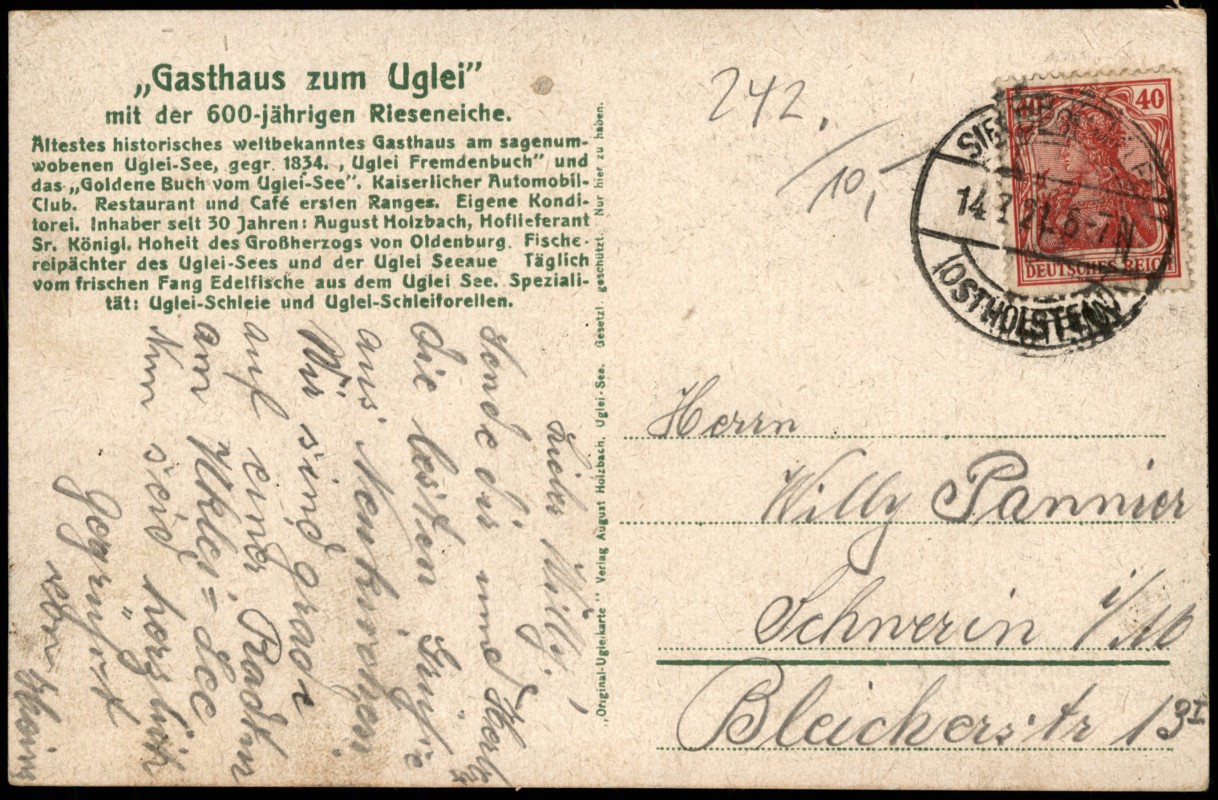 „Gasthaus zum Uglei”
mit der 600-jährigen Rieseneiche.
Ältestes historisches weltbekanntes Gasthaus am sagenum-
wobenen Uglei-See, gegr. 1834. „Uglei Fremdenbuch” und
das „Goldene Buch vom Uglei-See”. Kaiserlicher Automobil-
Club. Restaurant und Café ersten Ranges. Eigene Kondi-
torei. Inhaber seit 30 Jahren: August Holzbach, Hoflieferant
Sr. Königl. Hoheit des Großherzogs von Oldenburg. Fische-
reipächter des Uglei-Sees und der Uglei Seeaue Täglich
vom frischen Fang Edelfische aus dem Uglei See. Speziali-
tät: Uglei-Schleie und Uglei-Schleiforellen.
Lieber Willy!
sende dir und
die besten Grüße
aus Neukirchen
Wir sind grade
auf einer Radtn
am Uklei=See
Nun seid herzlich
gegrüsst
von
„Original-Ugleikarte” Verlag August Holzbach, Uglei-See. Gesetzl. geschützt. Nur hier zu haben.
242.
10,
40
DEUTSCHES REICH
14. 21. 6-7 N
(OSTHOLSTEIN)
Herrn
Willy Pannier
Schwerin i/M
Bleicherstr 13 I